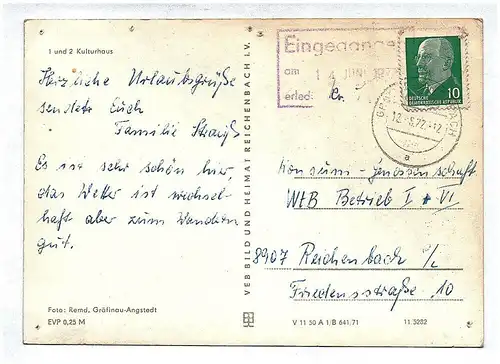 1 und 2 Kulturhaus
Herzliche Urlaubsgrüße
sendet Euch
Familie Strauß
Es ist sehr schön hier,
das Wetter ist wechsel-
haft aber zum Wandern
gut.
Foto: Remd, Gräfinau-Angstedt
EVP 0,25 M
VEB BILD UND HEIMAT REICHENBACH I. V.
Eingegangen
am 1 JUNI 197
erled.:
10
DEUTSCHE
DEMOKRATISCHE REPUBLIK
12.-6.72.-12
a
Konsum-Genossenschaft
WtB Betrieb I + VI
8907 Reichenbach/L
Friedensstraße 10
V 11 50 A 1/B 641/71
11.3282